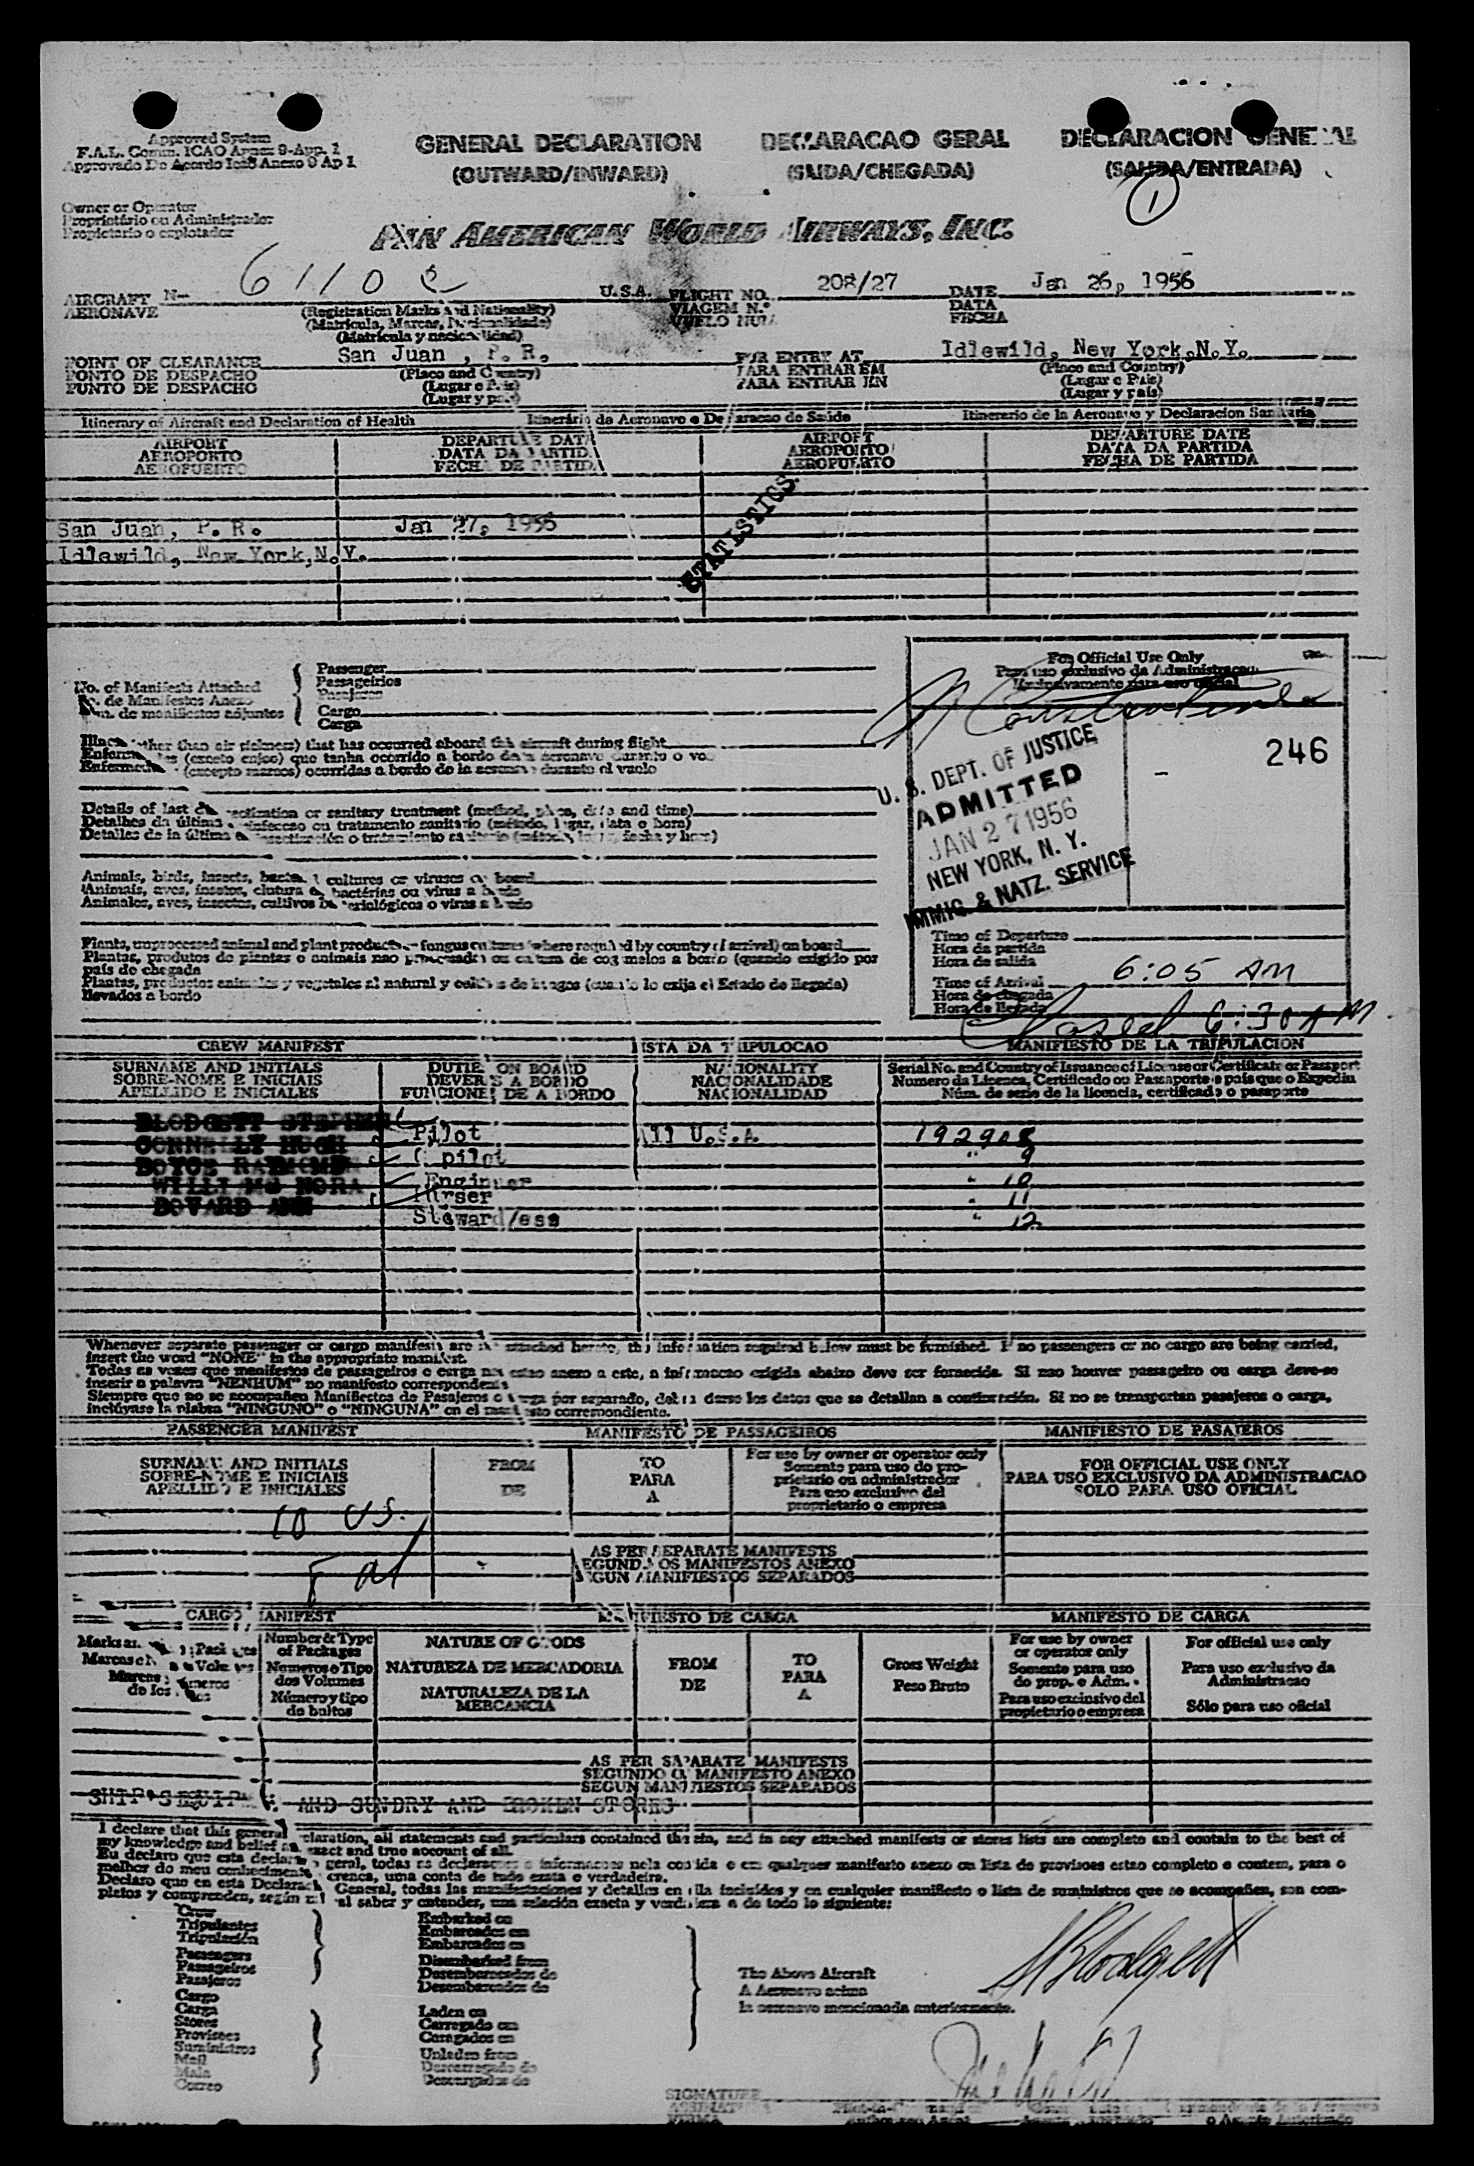 Approved System
F.A.L. Comm. ICAO Annex 9-App. 1
Approvado De Acordo Icao Anexo 9 Ap 1
GENERAL DECLARATION
(OUTWARD/INWARD)
DECLARACAO GERAL
(SAIDA/CHEGADA)
DECLARACION GENERAL
(SALIDA/ENTRADA)
1
Owner or Operator
Proprietário ou Administrador
Propietario o explotador
PAN AMERICAN WORLD AIRWAYS, INC.
AIRCRAFT N-
AERONAVE
6110
U.S.A.
(Registration Marks and Nationality)
(Matricula, Marcas, Nacionalidade)
(Matricula y nacionalidad)
FLIGHT NO. 208/27
VIAGEM N.º
VUELO NUM.
DATE Jan 26, 1956
DATA
FECHA
POINT OF CLEARANCE San Juan, P. R.
PONTO DE DESPACHO
PUNTO DE DESPACHO
(Place and Country)
(Lugar e Pais)
(Lugar y pais)
FOR ENTRY AT Idlewild, New York, N.Y.
PARA ENTRAR EM
PARA ENTRAR EN
(Place and Country)
(Lugar e Pais)
(Lugar y pais)
Itinerary of Aircraft and Declaration of Health
Itinerário da Aeronave e Declaracao de Saúde
Itinerario de la Aeronave y Declaracion Sanitaria
AIRPORT
AEROPORTO
AEROPUERTO
DEPARTURE DATE
DATA DA PARTIDA
FECHA DE PARTIDA
AIRPORT
AEROPORTO
AEROPUERTO
DEPARTURE DATE
DATA DA PARTIDA
FECHA DE PARTIDA
San Juan, P. R. Jan 27, 1956
Idlewild, New York, N.Y.
STATISTICS.
No. of Manifests Attached
No. de Manifestos Anexo
Num. de manifiestos adjuntos
Passenger
Passageirios
Pasajeros
Cargo
Carga
Illness (other than air sickness) that has occurred aboard the aircraft during flight
Details of last disinsectization or sanitary treatment (method, place, date and time)
Detalhes da última desinfeccao ou tratamento sanitario (método, lugar, data o hora)
Animals, birds, insects, bacterial cultures or viruses on board
Animais, aves, insetos, clutura de bactérias ou virus a bordo
Animales, aves, insectos, cultivos bacteriológicos o virus a bordo
Plants, unprocessed animal and plant products - fungus cultures (where required by country of arrival) on board
pais de chegada
llevados a bordo
For Official Use Only
Para uso exclusivo da Administracao
Exclusivamente para uso oficial
246
U. S. DEPT. OF JUSTICE
ADMITTED
JAN 27 1956
NEW YORK, N. Y.
IMMIG. & NATZ. SERVICE
Time of Departure
Hora da partida
Hora de salida
Time of Arrival 6:05 AM
Hora de chegada
Hora de llegada
Closed 6:30 AM
CREW MANIFEST
LISTA DA TRIPULOCAO
MANIFIESTO DE LA TRIPULACION
SURNAME AND INITIALS
SOBRE-NOME E INICIAIS
APELLIDO E INICIALES
DUTIES ON BOARD
DEVERES A BORDO
FUNCIONES DE A BORDO
NATIONALITY
NACIONALIDADE
NACIONALIDAD
Serial No. and Country of Issuance of License or Certificate or Passport
Numero da Licenca, Certificado ou Passaporte e pais que o Expediu
Núm. de serie de la licencia, certificado o pasaporte
BLODGETT STEPHEN Pilot All U.S.A. 192908
CONNELLY HUGH Copilot " 9
Engineer " 10
WILLIAMS NORA Purser " 11
BOVARD ANN Steward/ess " 12
Whenever separate passenger or cargo manifests are not attached hereto, the information required below must be furnished. If no passengers or no cargo are being carried,
insert the word "NONE" in the appropriate manifest.
Todas as vezes que manifestos de passageiros e carga nao estao anexo a este, a informacao exigida abaixo deve ser fornecida. Si nao houver passageiro ou carga deve-se
inserir a palavra "NENHUM" no manifesto correspondente
Siempre que no se acompañen Manifiestos de Pasajeros o carga por separado, deberá darse los datos que se detallan a continuación. Si no se transportan pasajeros o carga,
inclúyase la plabra "NINGUNO" o "NINGUNA" en el manifiesto correspondiente.
PASSENGER MANIFEST
MANIFESTO DE PASSAGEIROS
MANIFIESTO DE PASAJEROS
SURNAME AND INITIALS
SOBRE-NOME E INICIAIS
APELLIDO E INICIALES
FROM
DE
TO
PARA
A
For use by owner or operator only
Somente para uso do pro-
prietario ou administrador
Para uso exclusivo del
proprietario o empresa
FOR OFFICIAL USE ONLY
PARA USO EXCLUSIVO DA ADMINISTRACAO
SOLO PARA USO OFICIAL
10 US.
AS PER SEPARATE MANIFESTS
SEGUNDA OS MANIFESTOS ANEXO
SEGUN MANIFIESTOS SEPARADOS
CARGO MANIFEST
MANIFIESTO DE CARGA
MANIFESTO DE CARGA
Number & Type
of Packages
Numeros e Tipo
dos Volumes
Número y tipo
de bultos
NATURE OF GOODS
NATUREZA DE MERCADORIA
NATURALEZA DE LA
MERCANCIA
FROM
DE
TO
PARA
A
Gross Weight
Peso Bruto
For use by owner
or operator only
Somente para uso
do prop. e Adm.
Para uso exclusivo del
propietario o empresa
For official use only
Para uso exclusivo da
Administracao
Sólo para uso oficial
AS PER SAPARATE MANIFESTS
SEGUNDO O MANIFESTO ANEXO
SEGUN MANIFIESTOS SEPARADOS
SHIP'S EQUIP AND SUNDRY AND BROKEN STORES
I declare that this general declaration, all statements and particulars contained therein, and in any attached manifests or stores lists are complete and contain to the best of
my knowledge and belief an exact and true account of all.
Eu declaro que esta declaracao geral, todas as declaracoes e informacoes nela contida e em qualquer manifesto anexo ou lista de provisoes estao completo e contem, para o
melhor do meu conhecimento e crenca, uma conta de tudo exata e verdadeira.
Declaro que en esta Declaracion General, todas las manifestaciones y detalles en ella incluidos y en cualquier manifiesto o lista de suministros que se acompañen, son com-
pletos y comprenden, según mi leal saber y entender, una relación exacta y verdadera a de todo lo siguiente:
Crew
Tripulantes
Tripulación
Passengers
Passageiros
Pasajeros
Cargo
Carga
Stores
Provisoes
Suministros
Mail
Mala
Correo
Embarked on
Embarcados em
Embarcados en
Disembarked from
Desembarcados do
Desembarcados de
Laden on
Carregado em
Caragados en
Unladen from
Descarregado do
Descargados de
The Above Aircraft
A Aeronave acima
la aeronave mencionada anteriormente.
S Blodgett
SIGNATURE
ASSINATURA
FIRMA